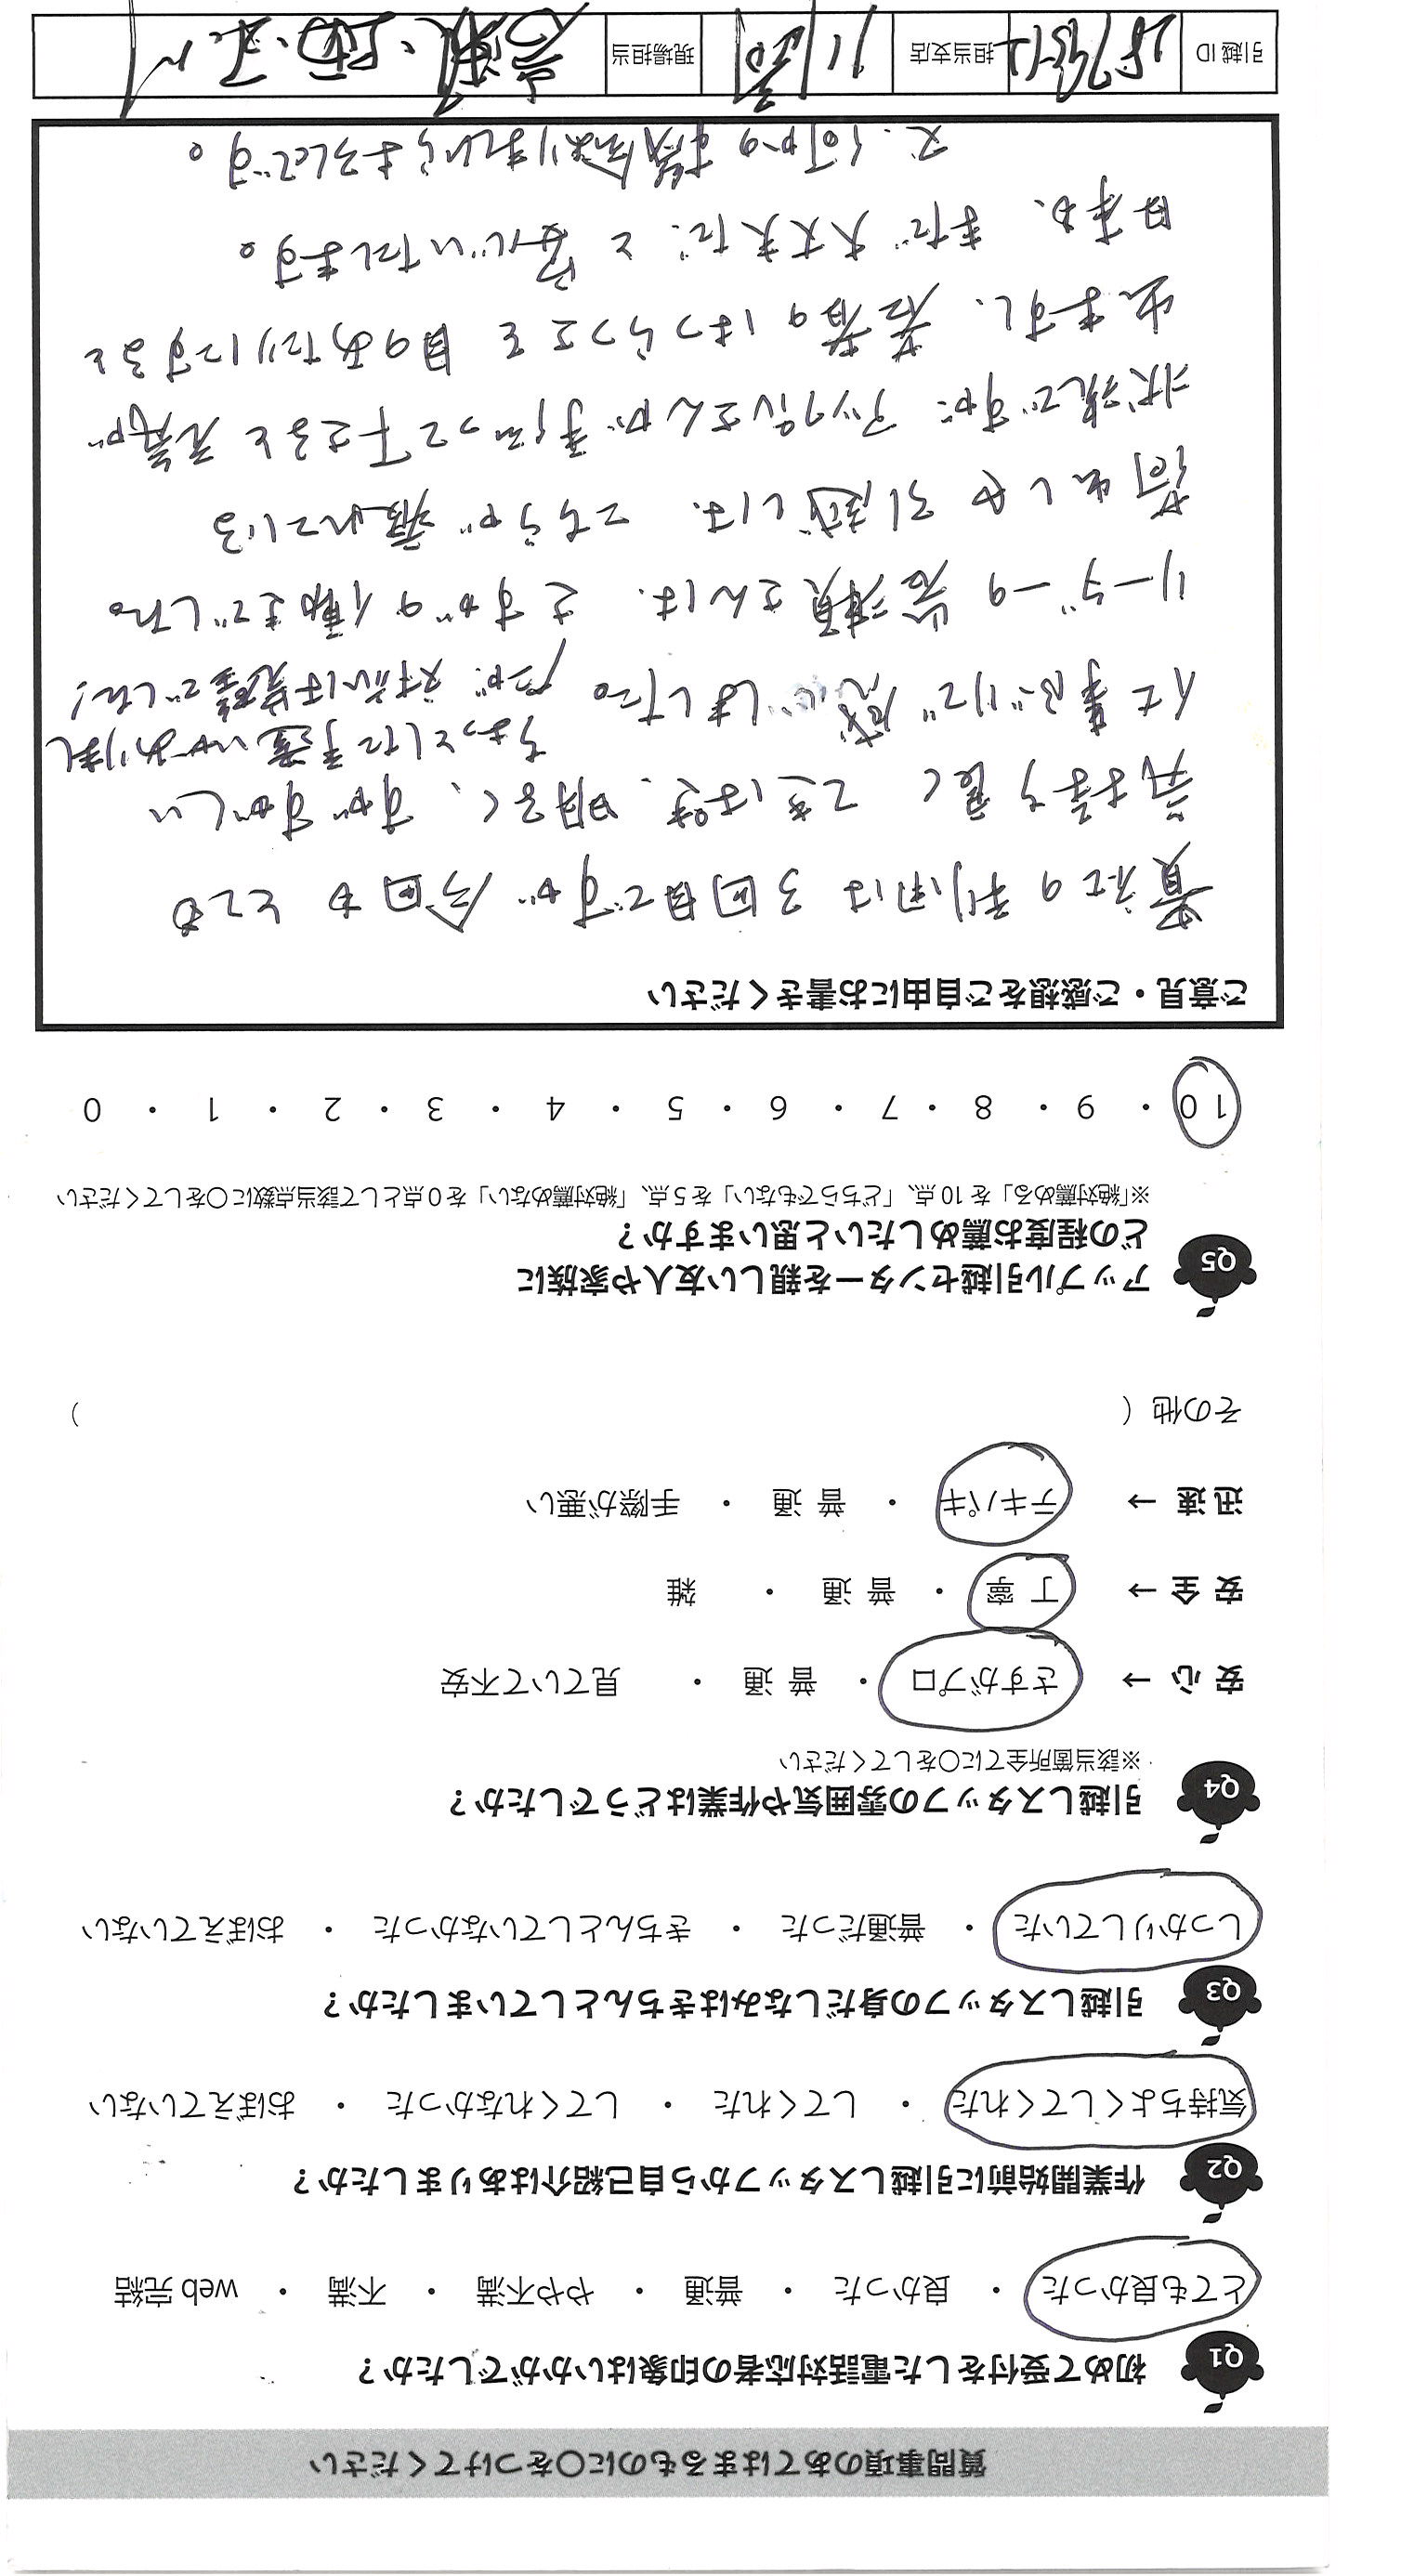 質問事項のあてはまるものに○をつけてください
Q1 初めて受付をした電話対応者の印象はいかがでしたか？
とても良かった ・ 良かった ・ 普通 ・ やや不満 ・ 不満 ・ web 完結
Q2 作業開始前に引越しスタッフから自己紹介はありましたか？
気持ちよくしてくれた ・ してくれた ・ してくれなかった ・ おぼえていない
Q3 引越しスタッフの身だしなみはきちんとしていましたか？
しっかりしていた ・ 普通だった ・ きちんとしていなかった ・ おぼえていない
Q4 引越しスタッフの雰囲気や作業はどうでしたか？
※該当箇所全てに○をしてください
安 心 → さすがプロ ・ 普 通 ・ 見ていて不安
安 全 → 丁 寧 ・ 普 通 ・ 雑
迅 速 → テキパキ ・ 普 通 ・ 手際が悪い
その他（ ）
Q5 アップル引越センターを親しい友人や家族に
どの程度お薦めしたいと思いますか？
※「絶対薦める」を 10 点、「どちらでもない」を 5 点、「絶対薦めない」を 0 点として該当点数に○をしてください
10 ・ 9 ・ 8 ・ 7 ・ 6 ・ 5 ・ 4 ・ 3 ・ 2 ・ 1 ・ 0
ご意見・ご感想をご自由にお書きください
貴社の利用は3回目ですが今回もとても
気持ち良く てきぱき、明るく、すがすがしい
ちょっとした手違いがありまし
仕事ぶりで感心しました。 たが、対応は完璧でした！
リーダーの岩瀬さんは、さすがの働きでした。
荷出しや引越しは、こちらが疲れている
状況ですが、アップルさんが手伝って下さると元気が
出ますし、若者のはつらつさを目のあたりにすると
日本も、まだ大丈夫だ、と安心いたします。
又、何かの機会ありましたらよろしくです。
引越 ID
担当支店 11
現場担当 岩瀬、